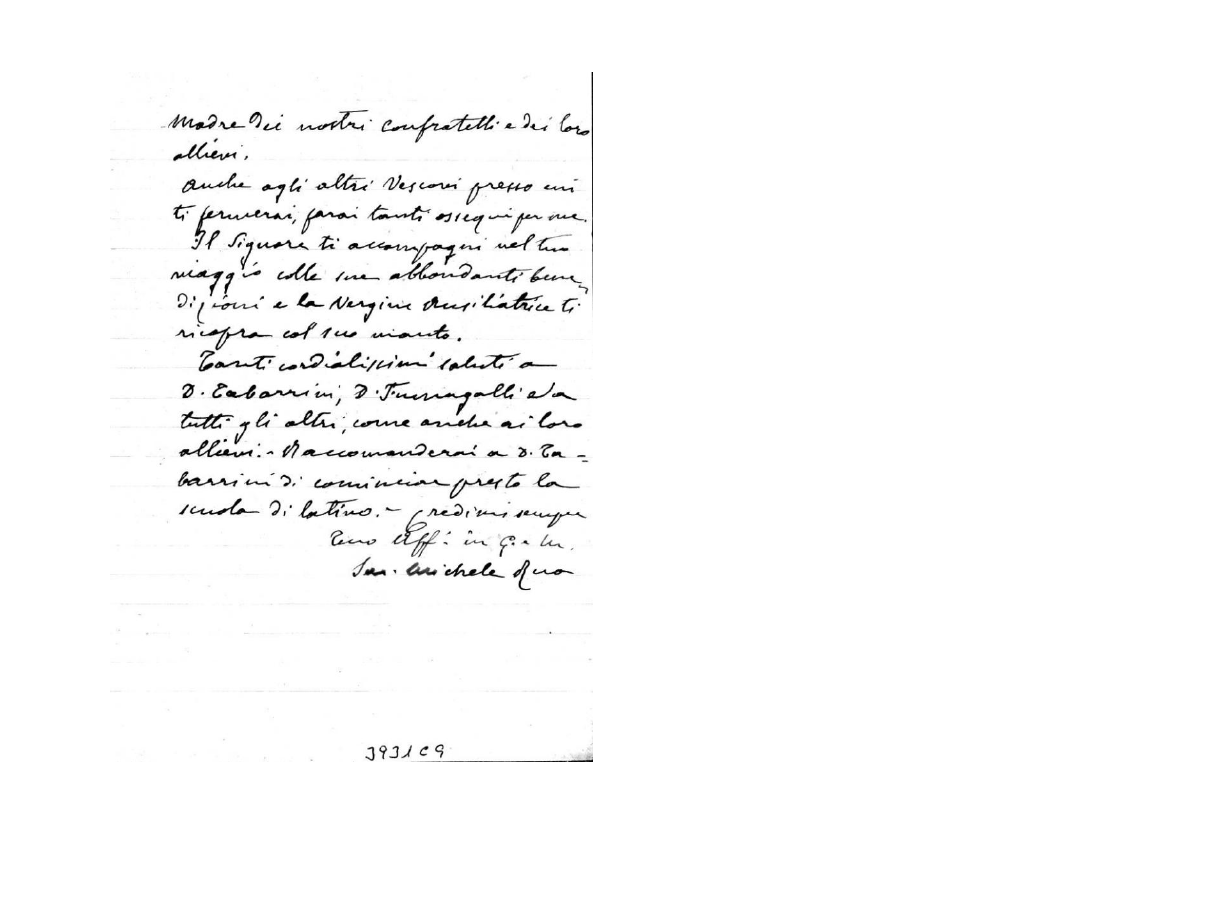 Madre dei nostri confratelli e dei loro
allievi.
Anche agli altri Vescovi presso cui
ti fermerai, farai tanti ossequi per me.
Il Signore ti accompagni nel tuo
viaggio colle sue abbondanti bene-
dizioni e la Vergine Ausiliatrice ti
ricopra col suo manto.
Tanti cordialissimi saluti a
D. Tabarrini, D. Fumagalli e a
tutti gli altri, come anche ai loro
allievi. - Raccomanderai a D. Ta=
barrini di cominciar presto la
scuola di latino. - Credimi sempre
Tuo Aff.: in G. e M.
Sac. Michele Rua
3931C9